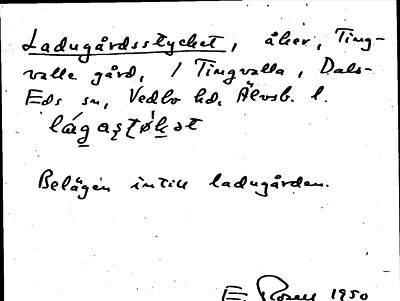 Ladugårdsstycket, åker, Ting-
valla gård, / Tingvalla, Dals-
Eds sn, Vedbo hd, Älvsb. l.
Belägen intill ladugården.
E. Rosell 1950